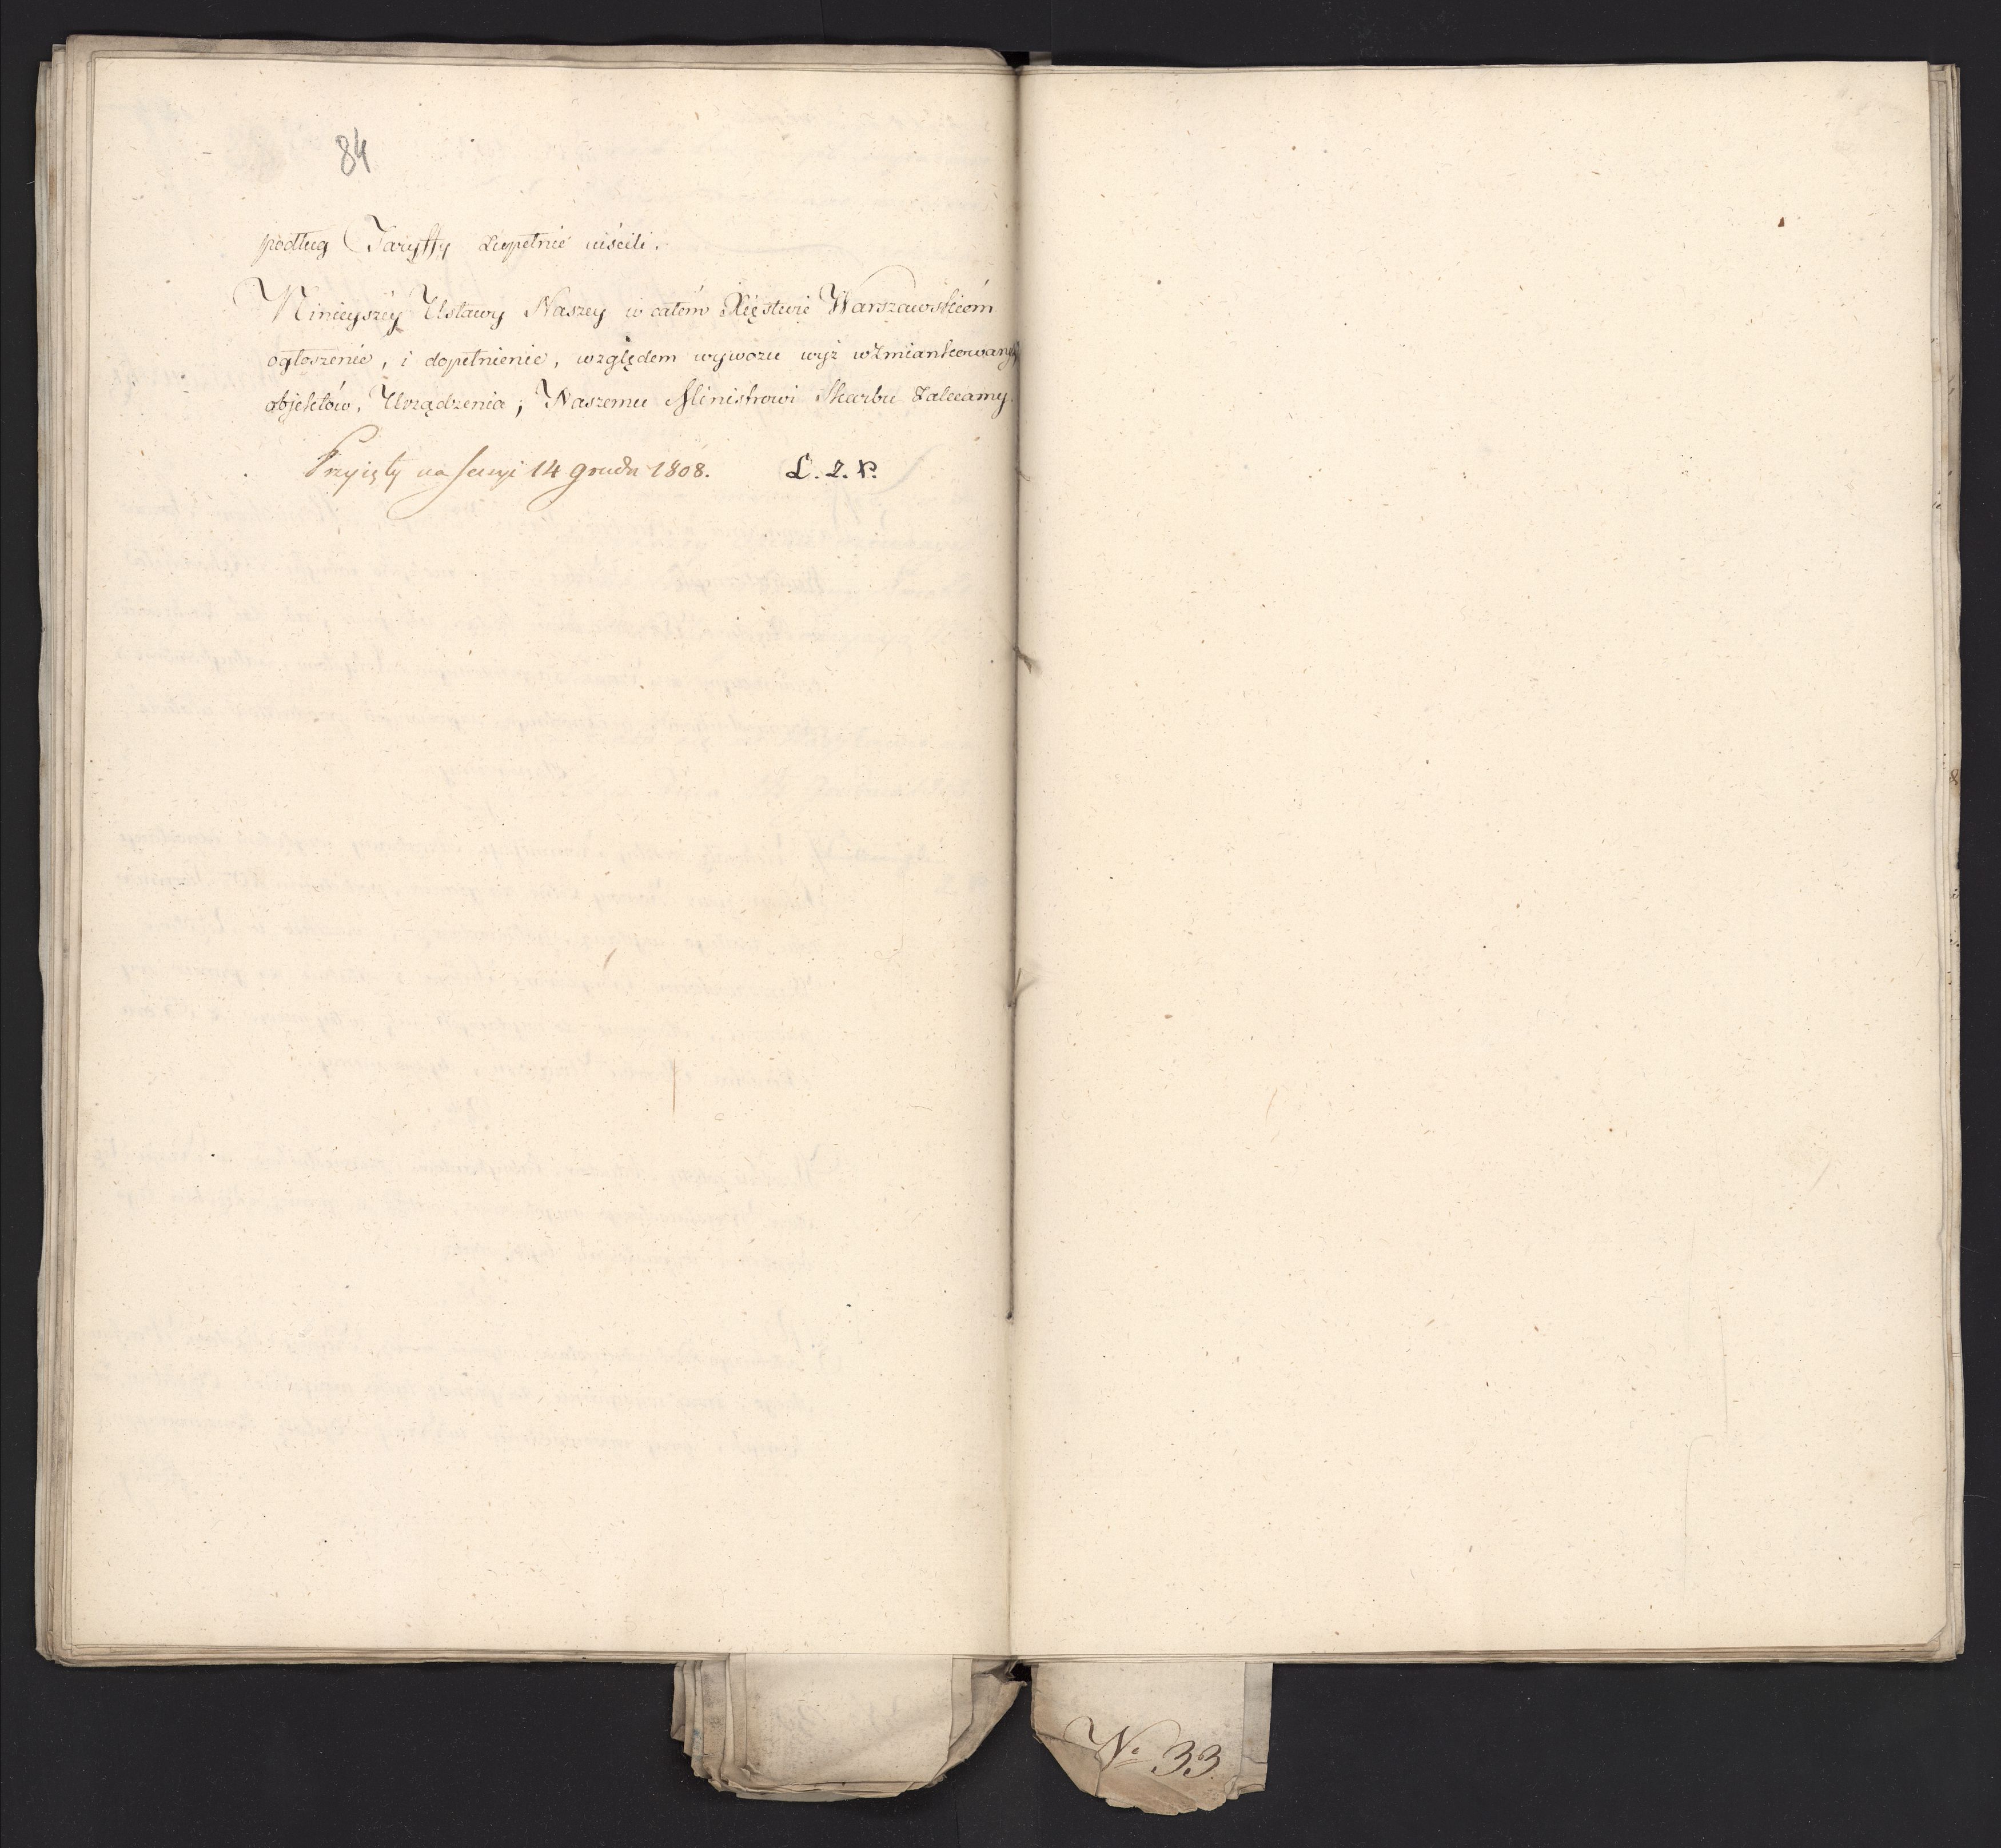 84
podług Taryffy zupełnie uiścili.
Ninieyszéy Ustawy Naszey w całém Xięstwie Warszawskiém
ogłoszenie, i dopełnienie, względem wywozu wyż wzmiankowanych
objektów, Urządzenia; Naszemu Ministrowi Skarbu zalecamy.
Przyięty na sessyi 14 grudn 1808. L. 2. P.
No 33